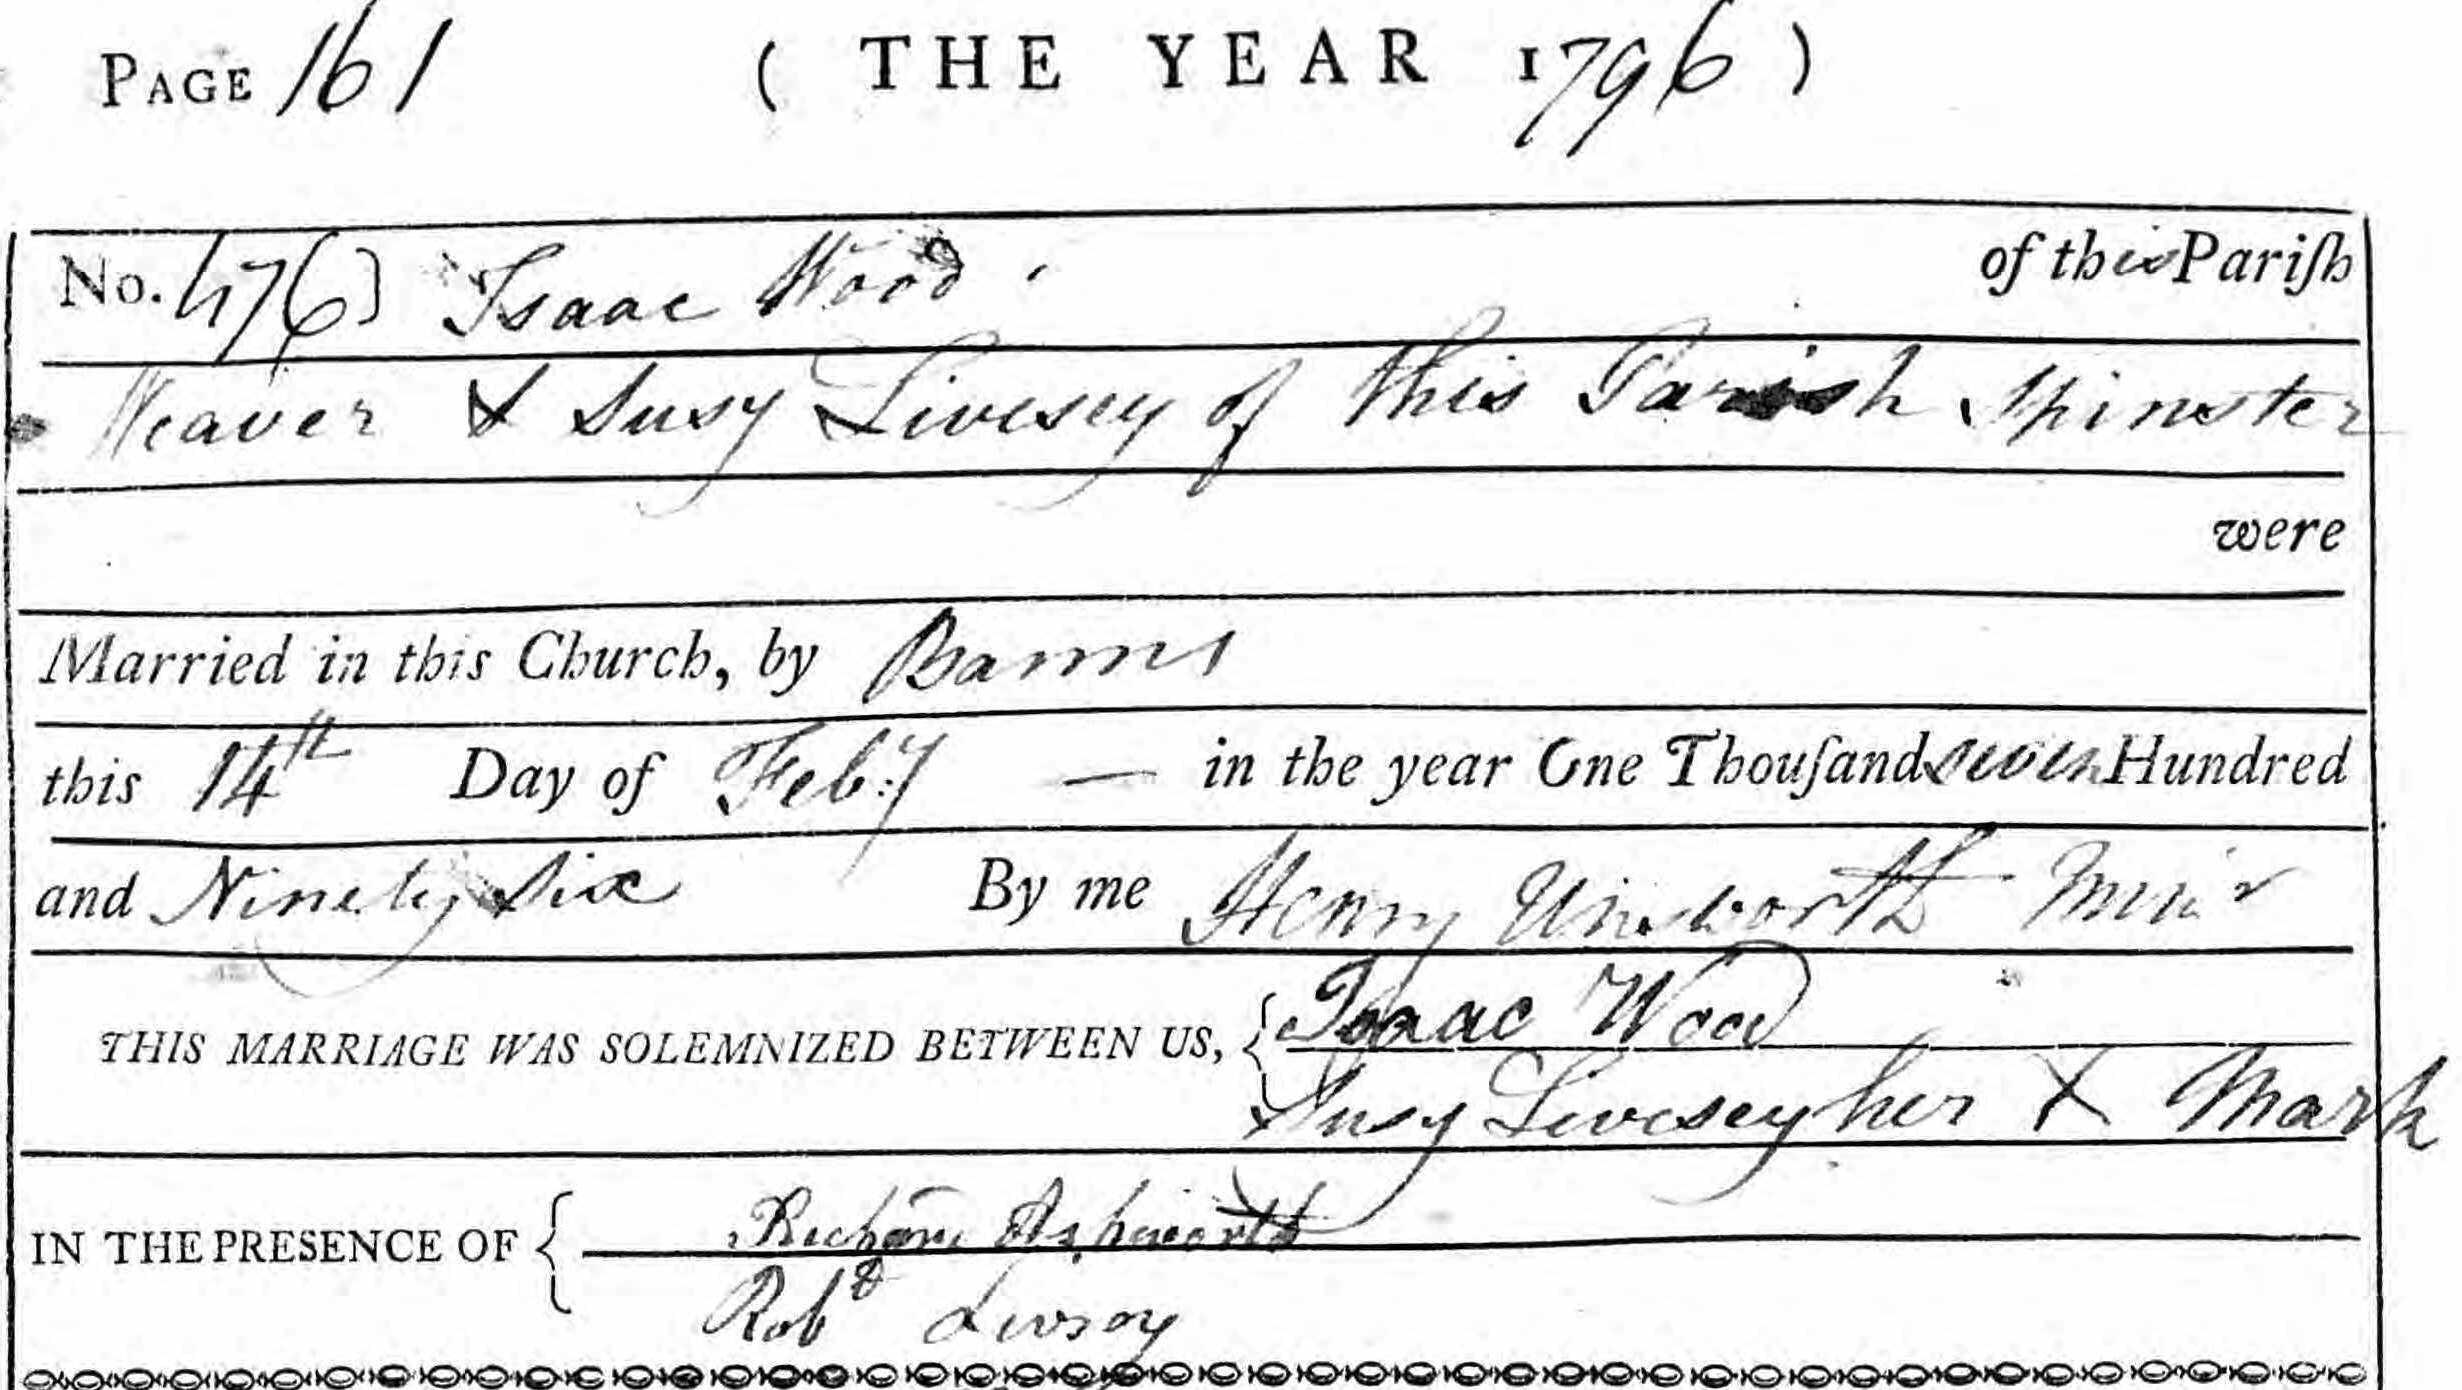 PAGE 161 ( THE YEAR 1796 )
No. 476) Isaac Wood of this Pariſh
Weaver & Susy Livesey of this Parish Spinster
were
Married in this Church, by Banns
this 14th Day of Feb:y — in the year One Thouſand seven Hundred
and Ninety Six By me Henry Unsworth Minr
THIS MARRIAGE WAS SOLEMNIZED BETWEEN US, { Isaac Wood
Susy Livesey her X Mark
IN THE PRESENCE OF { Richard Ashworth
Robt Livsey